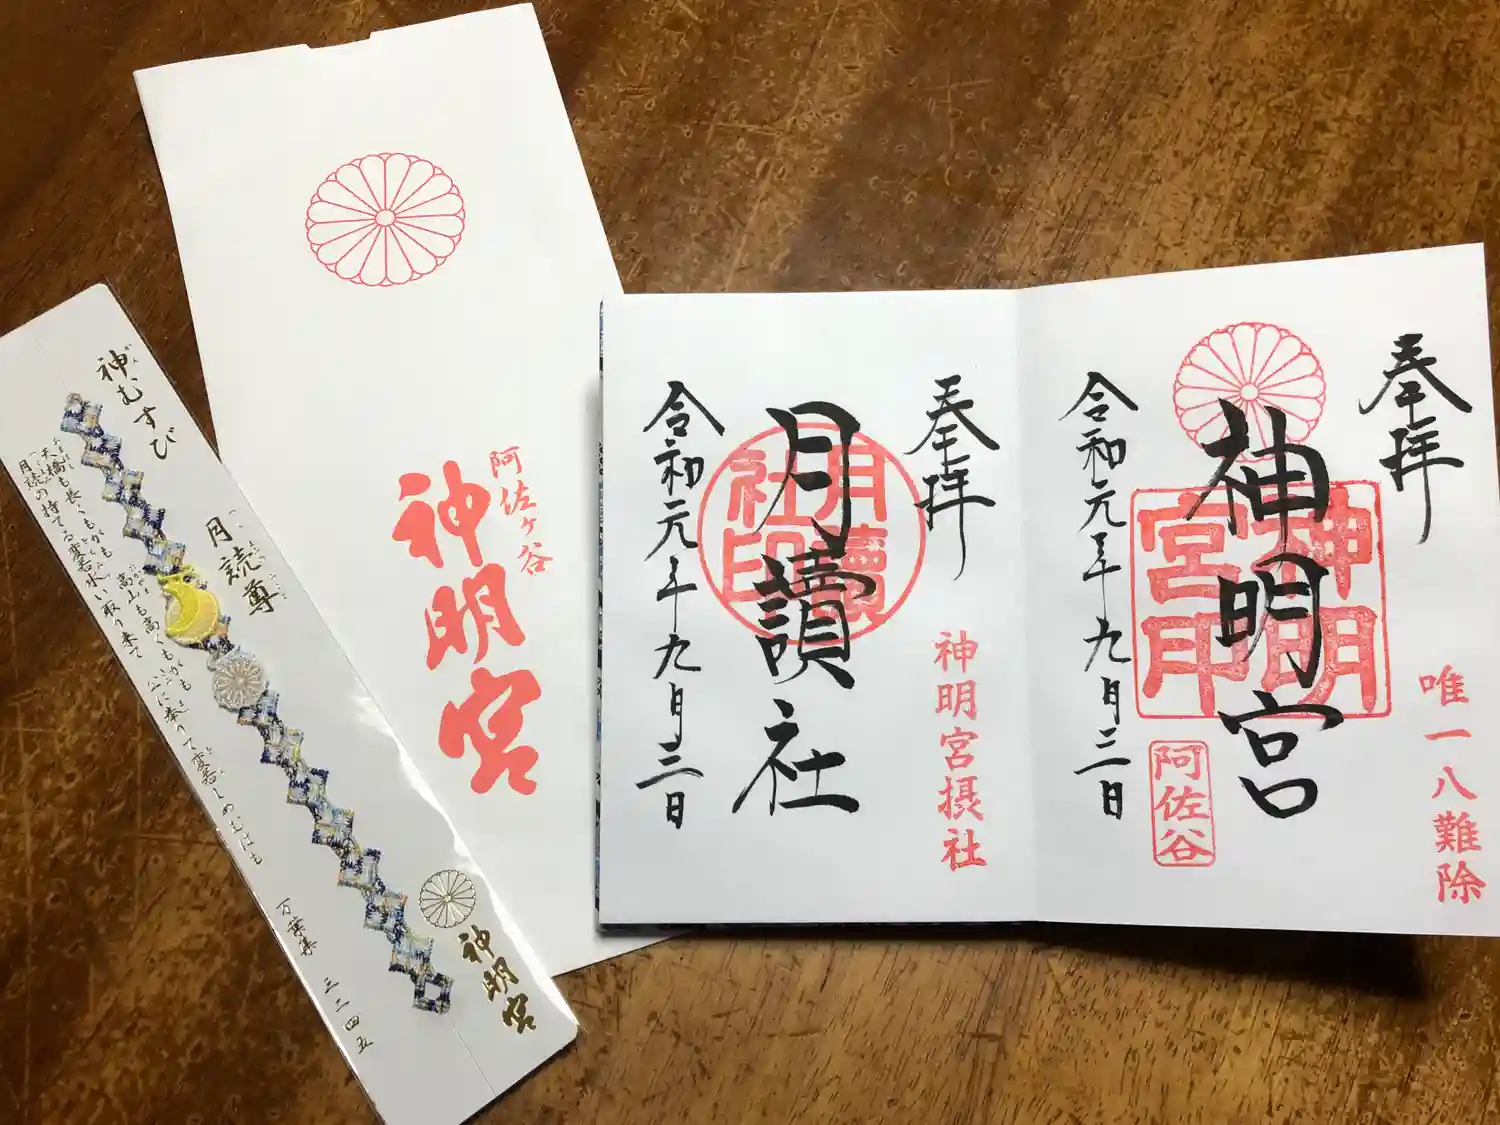 神むすび
月読尊
天橋も長くもがも 高山も高くもがも
月読の持てる変若水い取り来て 公に奉りて変若しめむはも
万葉集 三二四五
神明宮
阿佐ヶ谷
神明宮
奉拝
唯一八難除
神明宮
神明宮印
阿佐谷
令和元年九月三日
奉拝
神明宮摂社
月讀社
月讀社印
令和元年九月三日